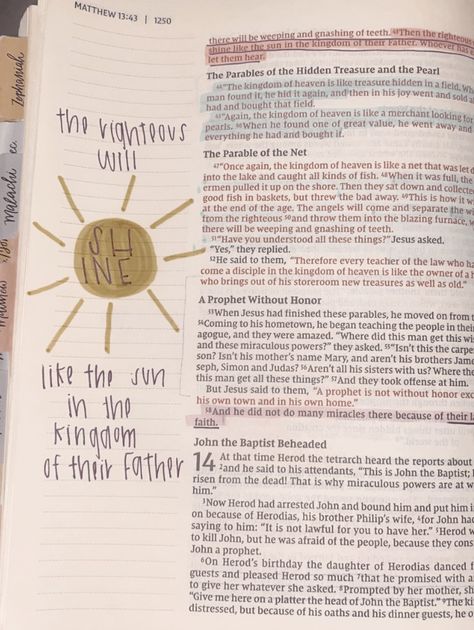 MATTHEW 13:43 | 1250
Zephaniah
Malachi
the righteous
will
SH
INE
like the sun
in the
kingdom
of their Father
there will be weeping and gnashing of teeth. 43Then the righteous
shine like the sun in the kingdom of their Father. Whoever has e
let them hear.
The Parables of the Hidden Treasure and the Pearl
44"The kingdom of heaven is like treasure hidden in a field. Wh
man found it, he hid it again, and then in his joy went and sold
had and bought that field.
45"Again, the kingdom of heaven is like a merchant looking for
pearls. 46When he found one of great value, he went away and
everything he had and bought it.
The Parable of the Net
47"Once again, the kingdom of heaven is like a net that was let d
into the lake and caught all kinds of fish. 48When it was full, the
ermen pulled it up on the shore. Then they sat down and collecte
good fish in baskets, but threw the bad away. 49This is how it w
at the end of the age. The angels will come and separate the w
from the righteous 50and throw them into the blazing furnace, w
there will be weeping and gnashing of teeth.
51"Have you understood all these things?" Jesus asked.
"Yes," they replied.
52He said to them, "Therefore every teacher of the law who ha
come a disciple in the kingdom of heaven is like the owner of a h
who brings out of his storeroom new treasures as well as old."
A Prophet Without Honor
53When Jesus had finished these parables, he moved on from t
54Coming to his hometown, he began teaching the people in their
agogue, and they were amazed. "Where did this man get this wis
and these miraculous powers?" they asked. 55"Isn't this the carpe
son? Isn't his mother's name Mary, and aren't his brothers Jame
seph, Simon and Judas? 56Aren't all his sisters with us? Where the
this man get all these things?" 57And they took offense at him.
But Jesus said to them, "A prophet is not without honor exc
his own town and in his own home."
58And he did not do many miracles there because of their la
faith.
John the Baptist Beheaded
14 At that time Herod the tetrarch heard the reports about
2and he said to his attendants, "This is John the Baptist; h
risen from the dead! That is why miraculous powers are at w
him."
3Now Herod had arrested John and bound him and put him i
on because of Herodias, his brother Philip's wife, 4for John had
saying to him: "It is not lawful for you to have her." 5Herod w
to kill John, but he was afraid of the people, because they cons
John a prophet.
6On Herod's birthday the daughter of Herodias danced f
guests and pleased Herod so much 7that he promised with a
to give her whatever she asked. 8Prompted by her mother, sh
"Give me here on a platter the head of John the Baptist." 9The ki
distressed, but because of his oaths and his dinner guests, he o